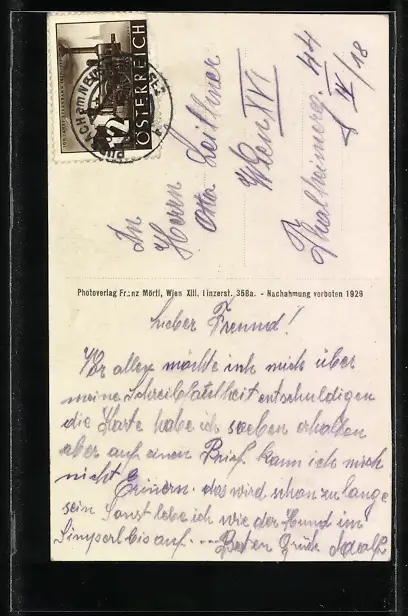 ÖSTERREICH
12
An
Herrn
Otto Leithner
Wien XVI
Thalheimerg. 44
IV/18
Photoverlag Franz Mörtl, Wien XIII, Linzerst. 358a. - Nachahmung verboten 1929
Lieber Freund!
Vor allem möchte ich mich über
meine Schreibfaulheit entschuldigen
die Karte habe ich soeben erhalten
aber auf einen Brief kann ich mich
nicht Erinern. das wird schon zu lange
sein Sonst lebe ich wie der Hund im
Simperl bis auf.... Besten Gruß Adolf